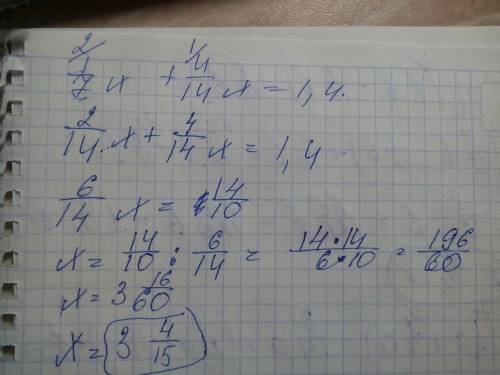 2/ 1/7 x + 1/ 4/14 x = 1,4.
2/14 x + 4/14 x = 1,4
6/14 x = 14/10
x = 14/10 : 6/14 = 14·14/6·10 = 196/60
x = 3 16/60
x = 3 4/15